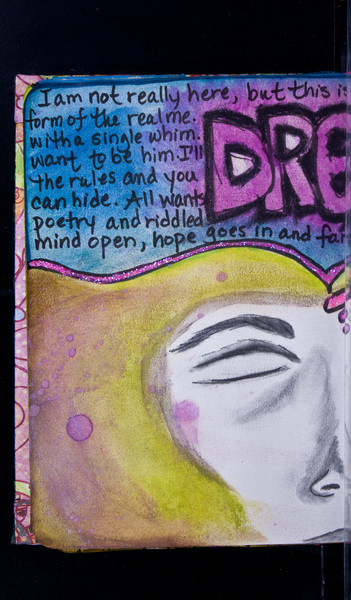 I am not really here, but this is
form of the real me.
with a single whim.
want to be him. I'll
the rules and you
can hide. All wants
poetry and riddled
mind open, hope goes in and fai
DRE